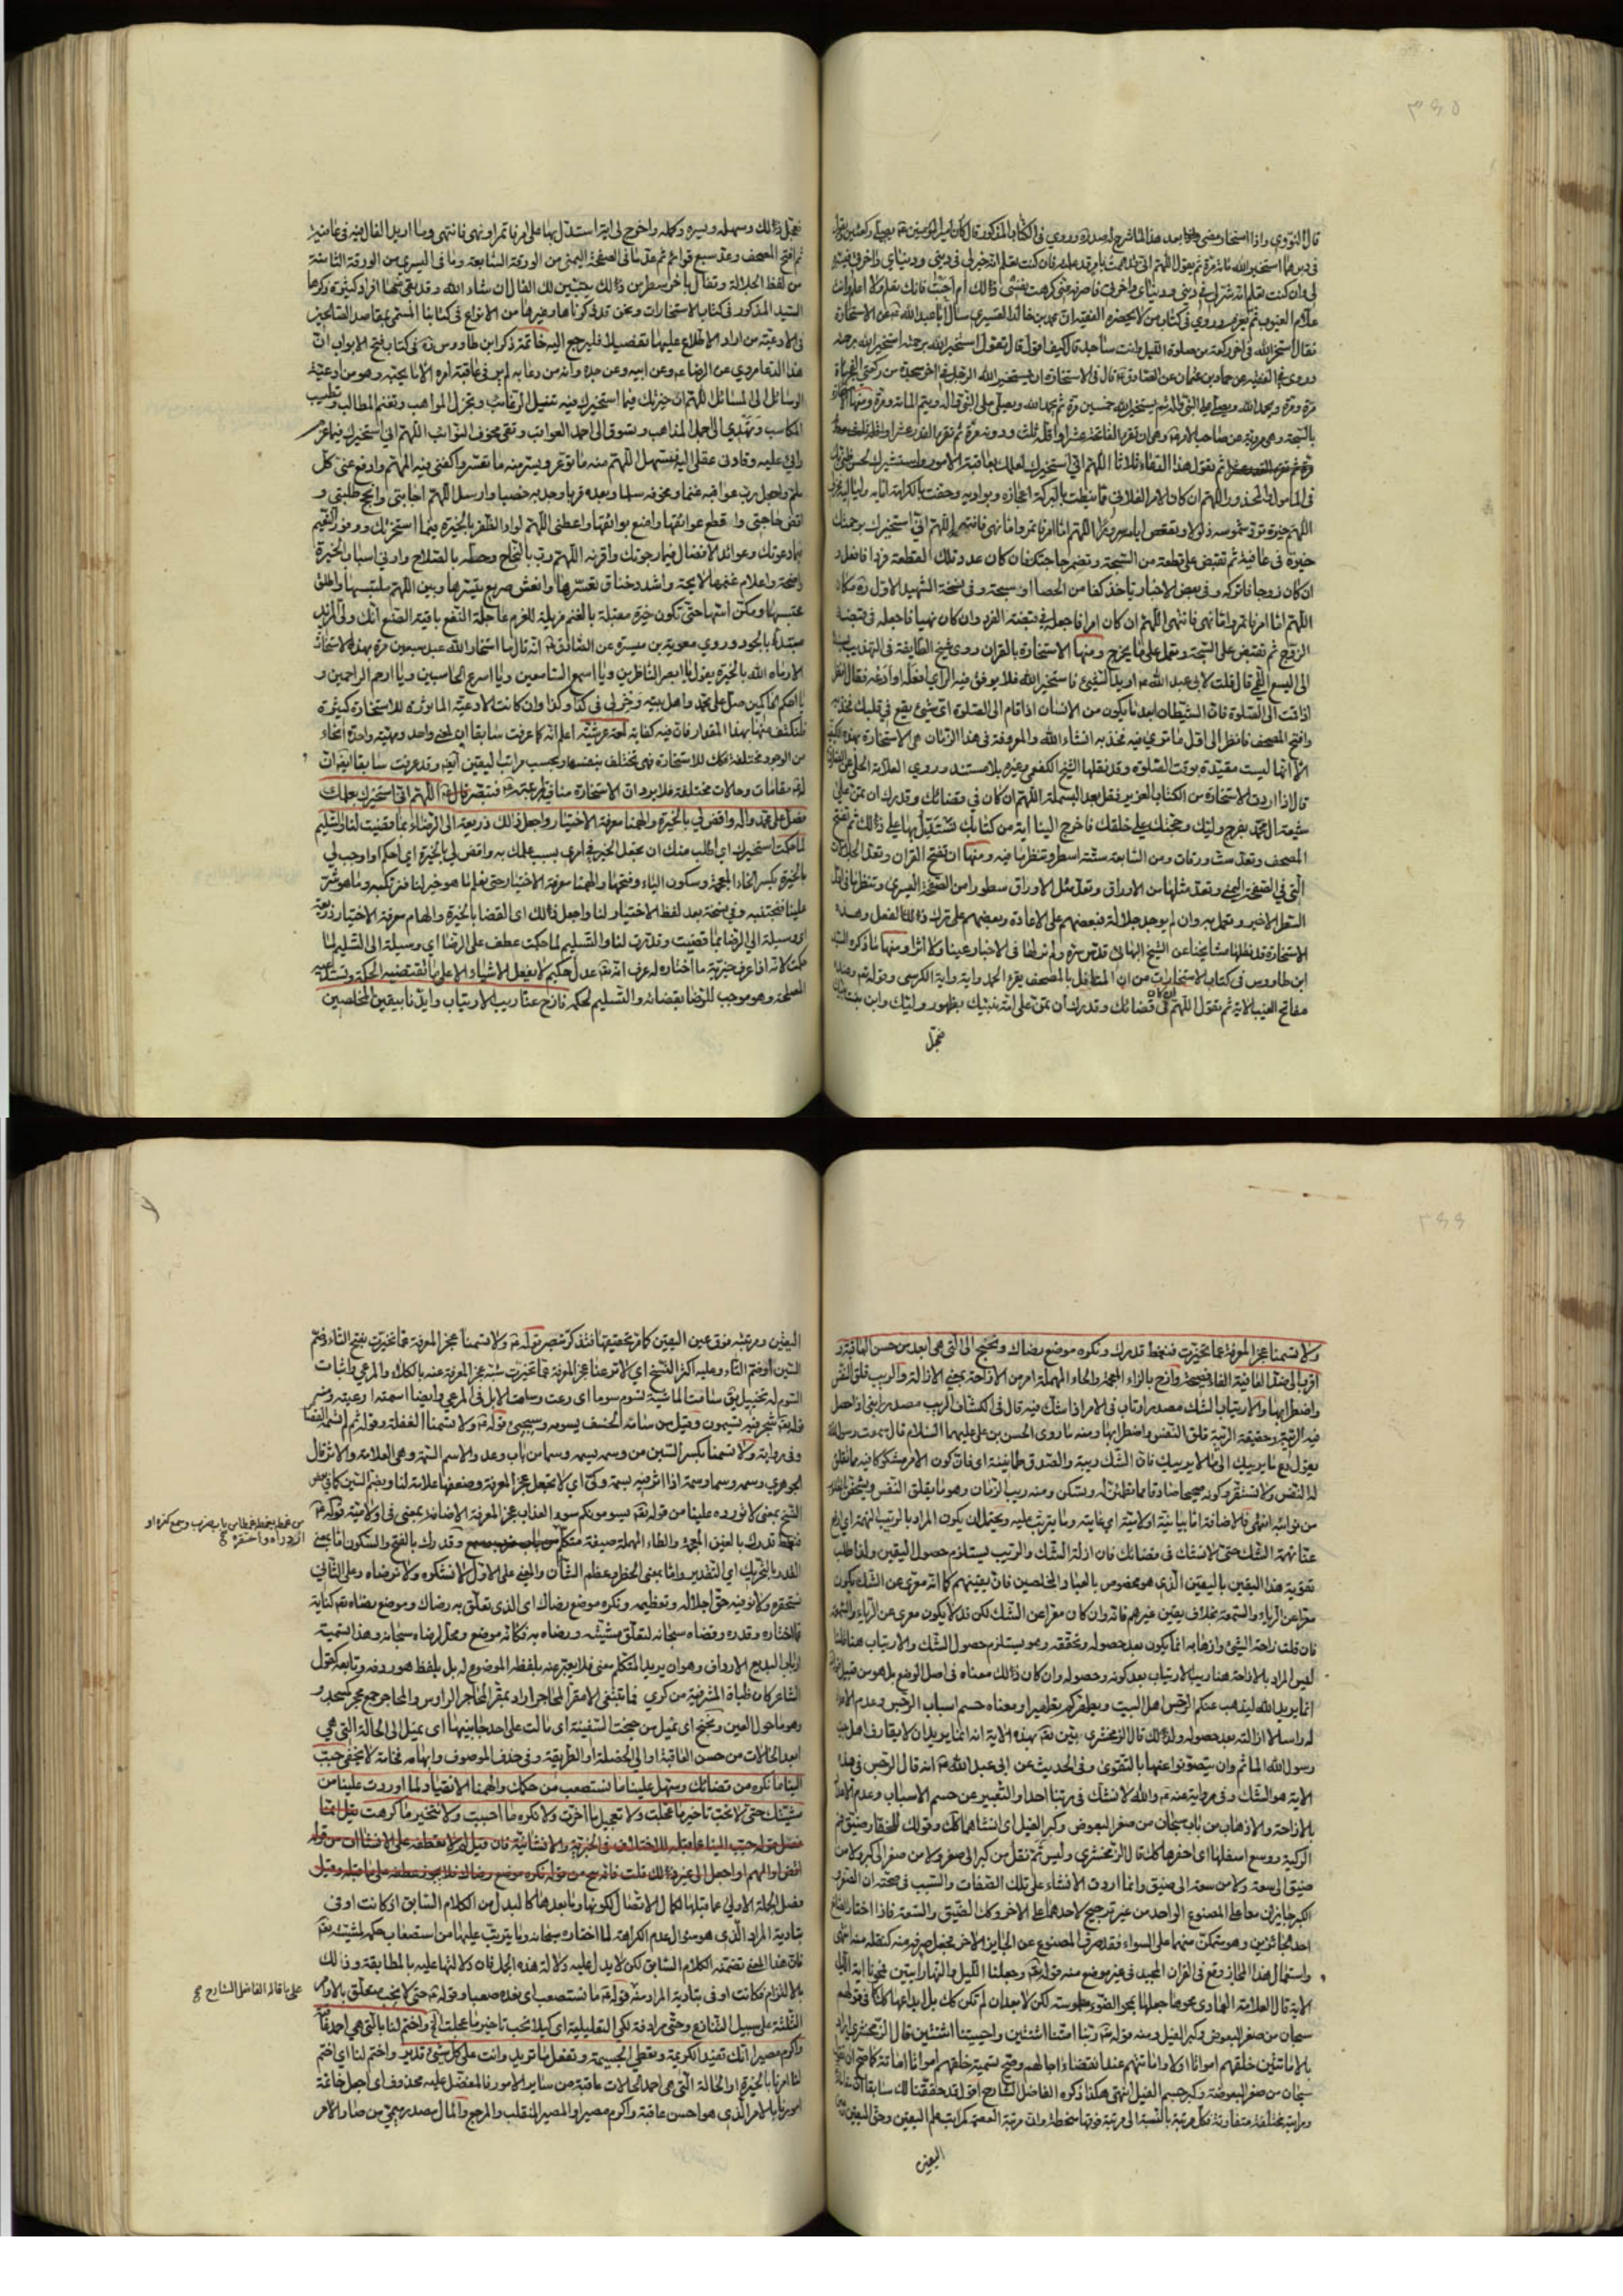 ٣٤٥
قال النووي واذا استخار مضى بعدها لما شرح له صدره وروي في الكتاب المذكور قال كان امير المؤمنين
في دبرهما استخير الله مائة مرة ثم يقول اللهم اني قد هممت بامر قد علمته فان كنت تعلم انه خير لي في ديني ودنياي واخرتي
لي وان كنت تعلم انه شر لي في ديني ودنياي واخرتي فاصرفه عني كرهت نفسي ذلك ام احبت فانك تعلم ولا اعلم وانت
علام الغيوب ثم يعزم وروي في كتاب من لا يحضره الفقيه ان محمد بن خالد القسري سأل ابا عبد الله عن الاستخارة
فقال استخر الله في اخر ركعة من صلوة الليل وانت ساجد قال كيف اقول قال تقول استخير الله برحمته استخير الله برحمته
وروي في الفقيه عن حماد بن عثمان عن الصادق قال في الاستخارة ان يستخير الله الرجل في اخر سجدة من ركعتي الفجر مائة
مرة ومرة ويحمد الله ويصلي على النبي واله ثم يستخير الله خمسين مرة ثم يحمد الله ويصلي على النبي واله ويتم المائة ومرة ومنها
بالسبحة وهي مروية عن صاحب الامر وهي ان تقرء الفاتحة عشرا واقله ثلث ودونه مرة ثم تقرء القدر عشرا
ثم يقول هذا الدعاء ثلاثا اللهم اني استخيرك لعلمك بعاقبة الامور واستشيرك لحسن ظني بك
في المأمول والمحذور اللهم ان كان الامر الفلاني قد نيطت بالبركة اعجازه وبواديه وحفت بالكرامة ايامه ولياليه
اللهم خيرة ترد شموسه ذلولا وتقعض ايامه سرورا اللهم اما امر فائتمر واما نهي فانتهي اللهم اني استخيرك برحمتك
خيرة في عافية ثم تقبض على قطعة من السبحة وتضمر حاجتك فان كان عدد تلك القطعة فردا فافعل و
ان كان زوجا فاتركه وفي بعض الاخبار تأخذ كفا من الحصا او سبحة وفي نسخة الشهيد الاول
اللهم اما امر فائتمر واما نهي فانتهى اللهم ان كان امرا فاجعله في قبضة الفرد وان كان نهيا فاجعله في قبضة
الزوج ثم تقبض على السبحة وتعمل على ما يخرج ومنها الاستخارة بالقران روى شيخ الطايفة في التهذيب
الى اليسع القمي قال قلت لابي عبد الله اريد الشيئ فاستخير الله فلا يوفق فيه الرأي افعله او ادعه فقال انظر
اذا قمت الى الصلوة فان الشيطان ابعد ما يكون من الانسان اذا قام الى الصلوة اي شيئ يقع في قلبك فخذ به
وافتح المصحف فانظر الى اول ما ترى فيه فخذ به انشاء الله والمعروفة في هذا الزمان هي الاستخارة بهذه
الا انها ليست مقيدة بوقت الصلوة وقد نقلها الشيخ الكفعمي وغيره بلا مستند وروي العلامة الحلي
قال اذا اردت الاستخارة من الكتاب العزيز فقل بعد البسملة اللهم ان كان في قضائك وقدرك ان تمن على
شيعة ال محمد بفرج وليك وحجتك على خلقك فاخرج الينا اية من كتابك نستدل بها على ذلك ثم تفتح
المصحف وتعد ست ورقات ومن السابعة ستة اسطر وتنظر ما فيه ومنها ان تفتح القران وتعد
التي في الصفحة اليمنى وتعد مثلها من الاوراق وتعد بمثل الاوراق سطورا من الصفحة اليسرى وتنظر ما في
السطر الاخير وتعمل به وان لم يوجد جلالة فبعضهم على الاعادة وبعضهم على ترك ذلك الفعل وهذه
الاستخارة قد نقلها مشايخنا عن الشيخ البهائي قدس سره ولم نر لها في الاخبار عينا ولا اثرا ومنها ما ذكره السيد
ابن طاووس في كتاب الاستخارات من ان المتفأل بالمصحف يقرء الحمد واية الكرسي وقوله تعالى وعنده
مفاتح الغيب الاية ثم يقول اللهم ان كان في قضائك وقدرك ان تمن على امة نبيك بظهور وليك وابن بنت
فعجل
فعجل ذلك وسهله ويسره وكمله واخرج لي اية استدل بها على امر فائتمر او نهي فانتهي وما اريد الفال فيه في عافية
ثم افتح المصحف وعد سبع قوائم ثم عد ما في الصفحة اليمنى من الورقة السابعة وما في اليسرى من الورقة الثامنة
من لفظ الجلالة وتفأل باخر سطر من ذلك يتبين لك الفال ان شاء الله وقد بقي منها افراد كثيرة ذكرها
السيد المذكور في كتاب الاستخارات ونحن قد ذكرناها وغيرها من الانواع في كتابنا المسمى بمقاصد الصالحين
في الادعية من اراد الاطلاع عليها تفصيلا فليرجع اليه خاتمة ذكر ابن طاووس في كتاب فتح الابواب ان
هذا الدعا مروي عن الرضا وعن ابيه وعن جده وانه من دعا به لم ير في عاقبة امره الا ما يحبه وهو من ادعية
الوسائل الى المسائل اللهم ان خيرتك فيما استخيرك فيه تنيل الرغائب وتجزل المواهب وتغنم المطالب وتطيب
المكاسب وتهدي الى اجمل المذاهب وتسوق الى احمد العواقب وتقي مخوف النوائب اللهم اني استخيرك فيما عزم
رأيي عليه وقادني عقلي اليه فسهل اللهم منه ما توعر ويسر منه ما تعسر واكفني فيه المهم وادفع عني كل
ملم واجعل رب عواقبه غنما ومخوفه سلما وبعده قربا وجدبه خصبا وارسل اللهم اجابتي وانجح طلبتي و
اقض حاجتي واقطع عوائقها وامنع بوائقها واعطني اللهم لواء الظفر بالخيرة فيما استخرتك ووفور الغنيم
فيما دعوتك وعوائد الافضال فيما رجوتك واقرنه اللهم رب بالنجاح وحطه بالصلاح وارني اسباب الخيرة
واضحة واعلام غنمها لايحة واشدد خناق تعسرها وانعش صريع تيسرها وبين اللهم ملتبسها واطلق
محتبسها ومكن اسها حتى تكون خيرة مقبلة بالغنم مزيلة للغرم عاجلة النفع باقية الصنع انك ولي المزيد
مبتدأ بالجود وروي معوية بن ميسرة عن الصادق انه قال ما استخار الله عبد سبعين مرة بهذه الاستخارة
الا رماه الله بالخيرة يقول يا ابصر الناظرين ويا اسمع السامعين ويا اسرع الحاسبين ويا ارحم الراحمين و
يا احكم الحاكمين صل على محمد واهل بيته وخر لي في كذا وكذا وان كانت الادعية المأثورة للاستخارة كثيرة
فلنكتف منها بهذا المقدار فان فيه كفاية لمعة عرشية اعلم انه كما عرفت سابقا ان لمعنى واحد ومهية واحدة انحاء
من الوجود مختلفة فكك للاستخارة فهي تختلف بنفسها وبحسب مراتب اليقين آنفه وقد عرفت سابقا ايضا ان
له مقامات وحالات مختلفة فلا يرد ان الاستخارة منافية لمرتبته فتبصر قال اللهم اني استخيرك بعلمك
فصل على محمد واله واقض لي بالخيرة والهمنا معرفة الاختيار واجعل ذلك ذريعة الى الرضاء بما قضيت لنا والتسليم
لما حكمت استخيرك اي اطلب منك ان تجعل الخير في امري بسبب علمك به واقض لي بالخيرة اي احكم او اوجب لي
بالخيرة بكسر الخاء المعجمة وسكون الياء وفتحها والهمنا معرفة الاختيار حتى نعلم ما هو خير لنا فنرتكبه وما هو شر
علينا فنجتنبه وفي نسخة بعد لفظ الاختيار لنا واجعل ذلك اي القضا بالخيرة والهام معرفة الاختيار ذريعة
اي وسيلة الى الرضا بما قضيت وقدرت لنا والتسليم لما حكمت عطف على الرضا اي وسيلة الى التسليم لما
حكمت لانه اذا عرف خيرية ما اختاره له عرف انه تعالى عدل حكيم لا يفعل الاشياء الا على ما تقتضيه الحكمة وتستدعيه
المصلحة وهو موجب للرضا بقضائه والتسليم لحكمه فازح عنا ريب الارتياب وايدنا بيقين المخلصين
٣٤٤
ولا تسمنا عجز المعرفة عما تخيرت فنغمط قدرك ونكره موضع رضاك ونجنح الى التي هي ابعد من حسن العاقبة و
اقرب الى ضد العافية الفاء فصيحة وازح بالزاء المعجمة والحاء المهملة امر من الازاحة بمعنى الازالة والريب قلق النفس
واضطرابها والارتياب الشك مصدر ارتاب في الامر اذا شك فيه قال في الكشاف الريب مصدر رابني اذا حصل
فيه الريبة وحقيقة الريبة قلق النفس واضطرابها ومنه ما روى الحسن بن علي عليهما السلام قال سمعت رسول الله
يقول دع ما يريبك الى ما لا يريبك فان الشك ريبة والصدق طمانينة اي فان كون الامر مشكوكا فيه مما تقلق
له النفس ولا تستقر وكونه صحيحا صادقا مما تطمئن له وتسكن ومنه ريب الزمان وهو ما يقلق النفس ويشخص بالقلوب
من نوائبه انتهى فالاضافة اما بيانية او لامية اي غايته وما يترتب عليه ويحتمل ان يكون المراد بالريب التهمة اي ازح
عنا تهمة الشك حتى لا نشك في قضائك فان ازالة الشك والريب يستلزم حصول اليقين ولذا طلب
تقوية هذا اليقين باليقين الذي هو مخصوص بالعباد المخلصين فان يقينهم كما انه معرى عن الشك يكون
معرا عن الرياء والسمعة بخلاف يقين غيرهم فانه وان كان معرا عن الشك لكن قد لا يكون معرى عن الرياء والسمعة
فان قلت ازاحة الشيئ وازهابه انما يكون بعد حصوله وتحققه وهو يستلزم حصول الشك والارتياب هنا قلنا
ليس المراد بالازاحة هنا ريب الارتياب بعد كونه وحصوله وان كان ذلك معناه في اصل الوضع بل هو من قبيل
انما يريد الله ليذهب عنكم الرجس اهل البيت ويطهركم تطهيرا ومعناه حسم اسباب الرجس وعدم الاعداد
له راسا لا ازالته بعد حصوله ولذلك قال الزمخشري بين تعالى بهذه الاية انه انما يريد ان لا يقارف اهل بيت
رسول الله المأثم وان يتصونوا عنها بالتقوى وفي الحديث عن ابي عبد الله انه قال الرجس في هذه
الاية هو الشك وفي رواية عنه والله لا نشك في ربنا ابدا والتعبير عن حسم الاسباب وعدم الاعداد
بالازاحة والاذهاب من باب سبحان من صغر البعوض وكبر الفيل اي انشأهما كذلك وقولك للحفار ضيق فم
الركية ووسع اسفلها اي احفرها كذلك قال الزمخشري وليس ثم نقل من كبر الى صغر ولا من صغر الى كبر ولا من
ضيق الى سعة ولا من سعة الى ضيق وانما اردت الانشاء على تلك الصفات والسبب في صحته ان الصغر و
الكبر جايزان معا على المصنوع الواحد من غير ترجيح لاحدهما على الاخر وكك الضيق والسعة فاذا اختار الصانع
احد الجائزين وهو متمكن منهما على السواء فقد صرف المصنوع عن الجايز الاخر فجعل صرفه منه كنقله منه انتهى
واستعمال هذا المجاز وقع في القران المجيد في غير موضع منه قوله تعالى وجعلنا الليل والنهار ايتين فمحونا اية الليل
الاية قال العلامة الهادي محوها جعلها ممحو الضوء مطموسته لكن لا بعد ان لم تكن كك بل ابداعها كذلك كما في قولهم
سبحان من صغر البعوض وكبر الفيل ومنه قوله تعالى ربنا امتنا اثنتين واحييتنا اثنتين قال الزمخشري اراد
بالاماتتين خلقهم امواتا اولا واماتتهم عند انقضاء اجالهم وصح تسمية خلقهم امواتا اماتة كما صح ان تقول
سبحان من صغر البعوضة وكبر جسم الفيل انتهى هكذا ذكره الفاضل الشارح اقول قد حققنا لك سابقا ان
ومراتبه مختلفة متفاوتة فكل مرتبة بالنسبة الى مرتبة فوقها منحطة وان مرتبة العصمة كمراتب علم اليقين وحق اليقين
اليقين
اليقين ومرتبة فوق عين اليقين كما مر تحقيقها فتذكر فتبصر قوله ولا تسمنا عجز المعرفة عما تخيرت بفتح التاء وضم
السين او ضم التاء وعليه اكثر النسخ اي لا ترعنا عجز المعرفة عما تخيرت شبه عجز المعرفة عنه بالكلاء والمرعى واثبات
السوم له تخييل يق سامت الماشية تسوم سوما اي رعت وسامت الابل في المرعى وايضا اسمتها رعيته ومنه
قوله تعالى شجر فيه تسيمون وقيل من سامه الخسف يسومه وسيجيئ قوله ولا تسمنا الغفلة وقوله ثم
وفي رواية ولا تسمنا بكسر السين من وسمه يسمه وسما من باب وعد والاسم السمة وهي العلامة والاثر قال
الجوهري وسمه وسما وسمة اذا اثر فيه بسمة وكي اي لا تجعل عجز المعرفة وضعفها علامة لنا وبضم السين كما في بعض
النسخ بمعنى لا تورده علينا من قوله تعالى يسومونكم سوء العذاب وعجز المعرفة الاضافة بمعنى في او لامية قوله
فنغمط قدرك بالغين المعجمة والطاء المهملة صيغة متكلم وقدرك بالفتح والسكون اما بمعنى
القدر بالتحريك اي التقدير واما بمعنى الخطر وعظم الشأن والمعنى على الاول لا نشكره ولا نرضاه وعلى الثاني
نستحقره ولا نوفيه حق اجلاله وتعظيمه ونكره موضع رضاك اي الذي تعلق به رضاك وموضع رضاه تعالى كناية
عما اختاره وقدره وقضاه سبحانه لتعلق مشيته ورضاه به فكانه موضع ومحل لرضاه سبحانه وهذا تسميه
ارباب البديع الارداف وهو ان يريد المتكلم معنى فلا يعبر عنه بلفظه الموضوع له بل بلفظ هو ردفه وتابعه كقول
وهو ما حول العين ونجنح اي نميل من جنحت السفينة اي مالت على احد جانبيها اي نميل الى الحالة التي هي
ابعد الحالات من حسن العاقبة او الى الخصلة او الطريقة وفي حذف الموصوف وابهامه فخامة لا يخفى حبب
الينا ما نكره من قضائك وسهل علينا ما نستصعب من حكمك والهمنا الانقياد لما اوردت علينا من
مشيتك حتى لا نحب تاخير ما عجلت ولا تعجيل ما اخرت ولا نكره ما احببت ولا نتخير ما كرهت
فصل الجملة الاولى عما قبلها لكمال الاتصال لكونها وما بعدها كالبدل من الكلام السابق اذ كانت اوفى
بتادية المراد الذي هو سؤال عدم الكراهة لما اختاره سبحانه وما يترتب عليها من استصعاب حكم المشية
فان هذا المعنى تضمنه الكلام السابق لكن لا يدل عليه دلالة هذه الجمل فان دلالتها عليه بالمطابقة وذلك
بالالتزام فكانت اوفى بتادية المراد منه قوله ما نستصعب اي نعده صعبا وقوله حتى لا نحب متعلق بالاوامر
الثلثة على سبيل التنازع وحتى مرادفة لكي التعليلية اي كيلا نحب تاخير ما عجلت الى واختم لنا بالتي هي احمد عاقبة
واكرم مصيرا انك تفيد الكريمة وتعطي الجسيمة وتفعل ما تريد وانت على كل شيئ قدير واختم لنا اي اختم
لنا امرنا بالخيرة او الحالة التي هي احمد الحالات عاقبة من ساير الامور فالمفضل عليه محذوف اي اجعل خاتمة
امورنا بالامر الذي هو احسن عاقبة واكرم مصيرا والمصير المنقلب والمرجع والمال مصدر ميمي من صار الامر
من غمط يغمط غمطا من باب ضرب وسمع كفره او
ازدراه واحتقره
على ما قاله الفاضل الشارح